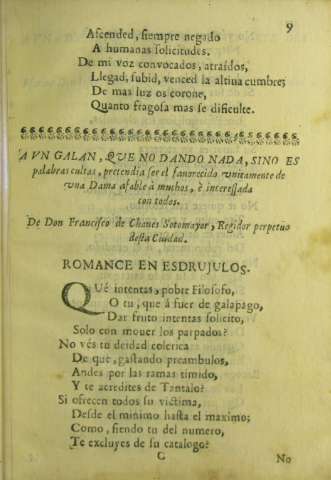 9
Ascended, siempre negado
A humanas solicitudes.
De mi voz convocados, atraídos,
Llegad, subid, venced la altiua cumbre;
De mas luz os corone,
Quanto fragosa mas se dificulte.
A VN GALAN, QVE NO DANDO NADA, SINO ES
palabras cultas, pretendia ser el fauorecido vnicamente de
vna Dama afable à muchos, è interessada
con todos.
De Don Francisco de Chaues Sotomayor, Regidor perpetuo
desta Ciudad.
ROMANCE EN ESDRUJULOS.
QUé intentas, pobre Filosofo,
O tu, que à fuer de galapago,
Dar fruto intentas solicito,
Solo con mouer los parpados?
No vés tu deidad colerica
De que, gastando preambulos,
Andes por las ramas timido,
Y te acredites de Tantalo?
Si ofrecen todos su victima,
Desde el minimo hasta el maximo;
Como, siendo tu del numero,
Te excluyes de su catalogo?
C No